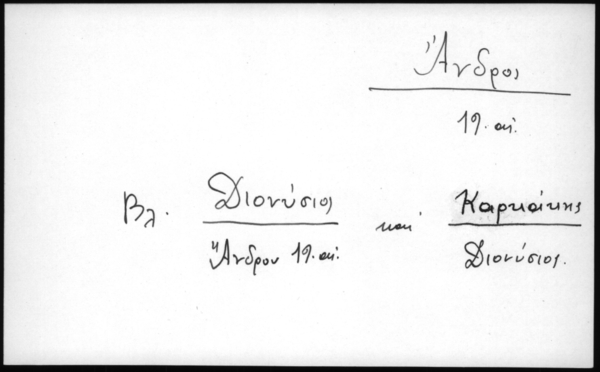 Ἄνδρος
19. αἰ.
Βλ. Διονύσιος καὶ Καρκάκης
Ἄνδρου 19. αἰ. Διονύσιος.